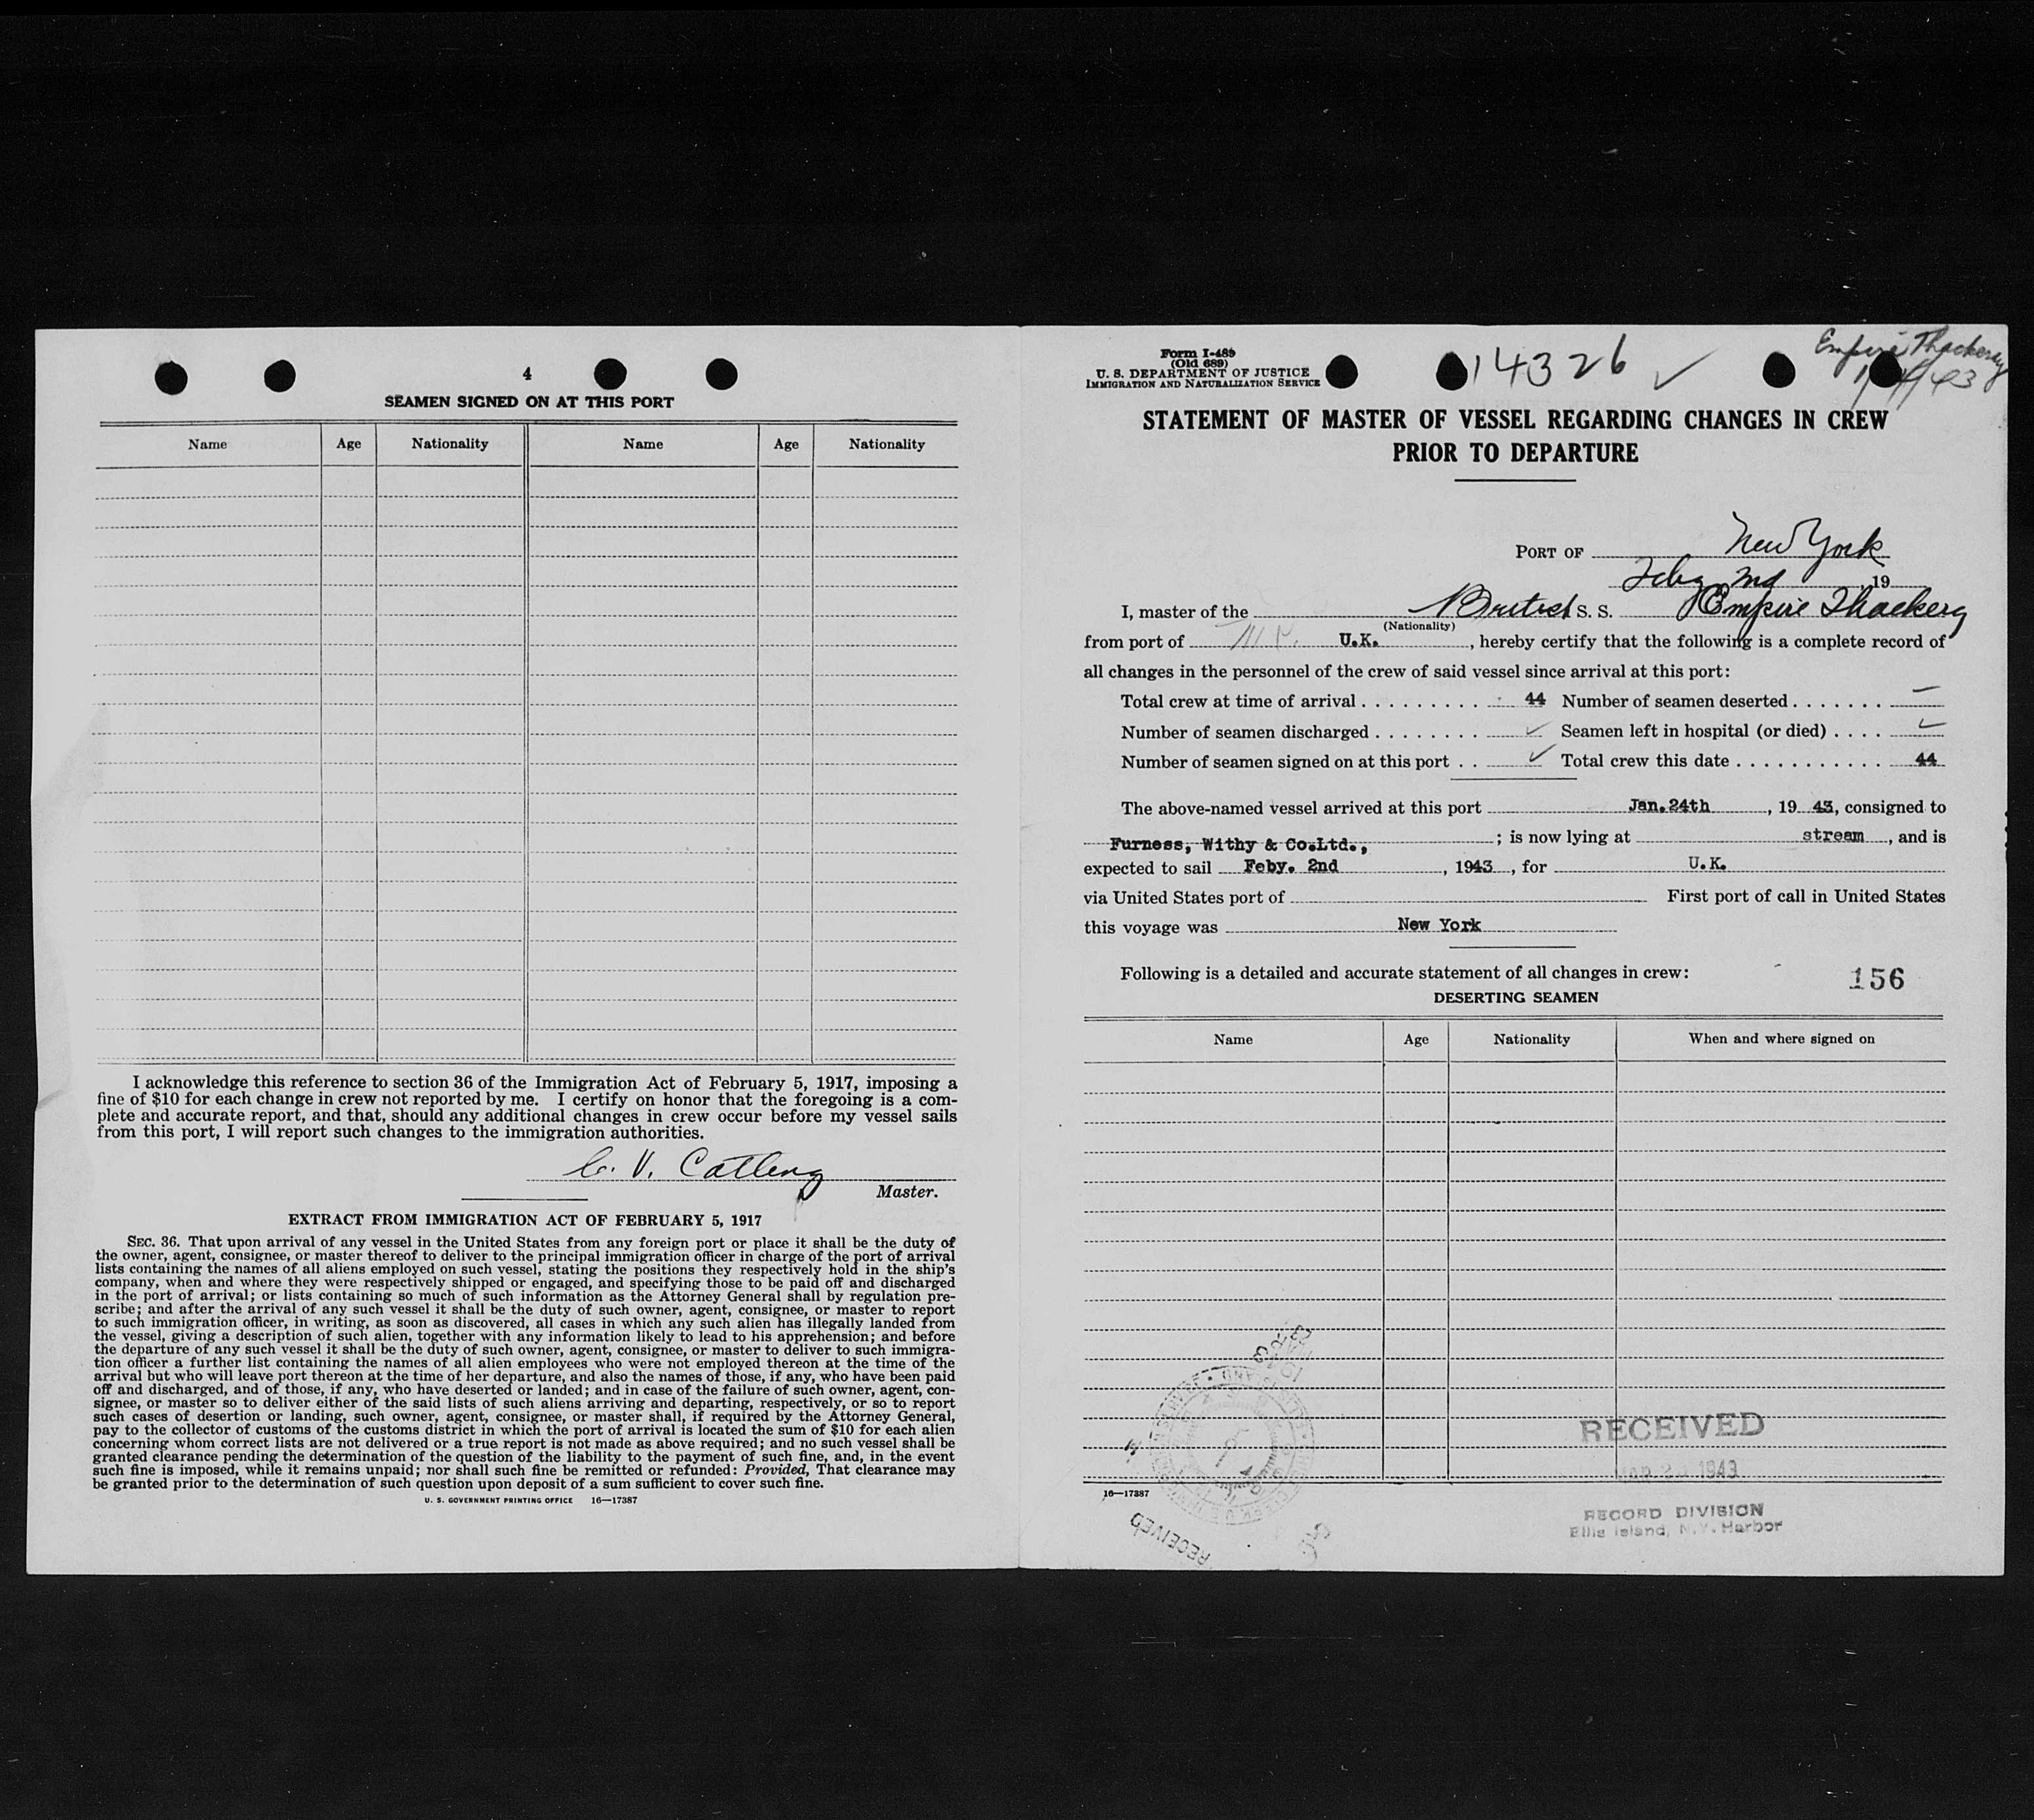 4
SEAMEN SIGNED ON AT THIS PORT
Name Age Nationality Name Age Nationality
I acknowledge this reference to section 36 of the Immigration Act of February 5, 1917, imposing a
fine of $10 for each change in crew not reported by me. I certify on honor that the foregoing is a com-
plete and accurate report, and that, should any additional changes in crew occur before my vessel sails
from this port, I will report such changes to the immigration authorities.
C. V. Catling
Master.
EXTRACT FROM IMMIGRATION ACT OF FEBRUARY 5, 1917
SEC. 36. That upon arrival of any vessel in the United States from any foreign port or place it shall be the duty of
the owner, agent, consignee, or master thereof to deliver to the principal immigration officer in charge of the port of arrival
lists containing the names of all aliens employed on such vessel, stating the positions they respectively hold in the ship's
company, when and where they were respectively shipped or engaged, and specifying those to be paid off and discharged
in the port of arrival; or lists containing so much of such information as the Attorney General shall by regulation pre-
scribe; and after the arrival of any such vessel it shall be the duty of such owner, agent, consignee, or master to report
to such immigration officer, in writing, as soon as discovered, all cases in which any such alien has illegally landed from
the vessel, giving a description of such alien, together with any information likely to lead to his apprehension; and before
the departure of any such vessel it shall be the duty of such owner, agent, consignee, or master to deliver to such immigra-
tion officer a further list containing the names of all alien employees who were not employed thereon at the time of the
arrival but who will leave port thereon at the time of her departure, and also the names of those, if any, who have been paid
off and discharged, and of those, if any, who have deserted or landed; and in case of the failure of such owner, agent, con-
signee, or master so to deliver either of the said lists of such aliens arriving and departing, respectively, or so to report
such cases of desertion or landing, such owner, agent, consignee, or master shall, if required by the Attorney General,
pay to the collector of customs of the customs district in which the port of arrival is located the sum of $10 for each alien
concerning whom correct lists are not delivered or a true report is not made as above required; and no such vessel shall be
granted clearance pending the determination of the question of the liability to the payment of such fine, and, in the event
such fine is imposed, while it remains unpaid; nor shall such fine be remitted or refunded: Provided, That clearance may
be granted prior to the determination of such question upon deposit of a sum sufficient to cover such fine.
U. S. GOVERNMENT PRINTING OFFICE 16—17387
Form I-489
(Old 689)
U. S. DEPARTMENT OF JUSTICE
IMMIGRATION AND NATURALIZATION SERVICE
14326 ✓
Empire Thackeray
STATEMENT OF MASTER OF VESSEL REGARDING CHANGES IN CREW
PRIOR TO DEPARTURE
PORT OF New York
Feby 2nd, 19
I, master of the British S. S. Empire Thackery
(Nationality)
from port of U.K., hereby certify that the following is a complete record of
all changes in the personnel of the crew of said vessel since arrival at this port:
Total crew at time of arrival 44 Number of seamen deserted —
Number of seamen discharged ✓ Seamen left in hospital (or died) ✓
Number of seamen signed on at this port ✓ Total crew this date 44
The above-named vessel arrived at this port Jan.24th, 19 43, consigned to
Furness, Withy & Co.Ltd., ; is now lying at stream, and is
expected to sail Feby. 2nd, 1943, for U.K.
via United States port of First port of call in United States
this voyage was New York
Following is a detailed and accurate statement of all changes in crew: 156
DESERTING SEAMEN
Name Age Nationality When and where signed on
RECEIVED
1943
RECORD DIVISION
Ellis Island, N.Y. Harbor
16—17387
RECEIVED